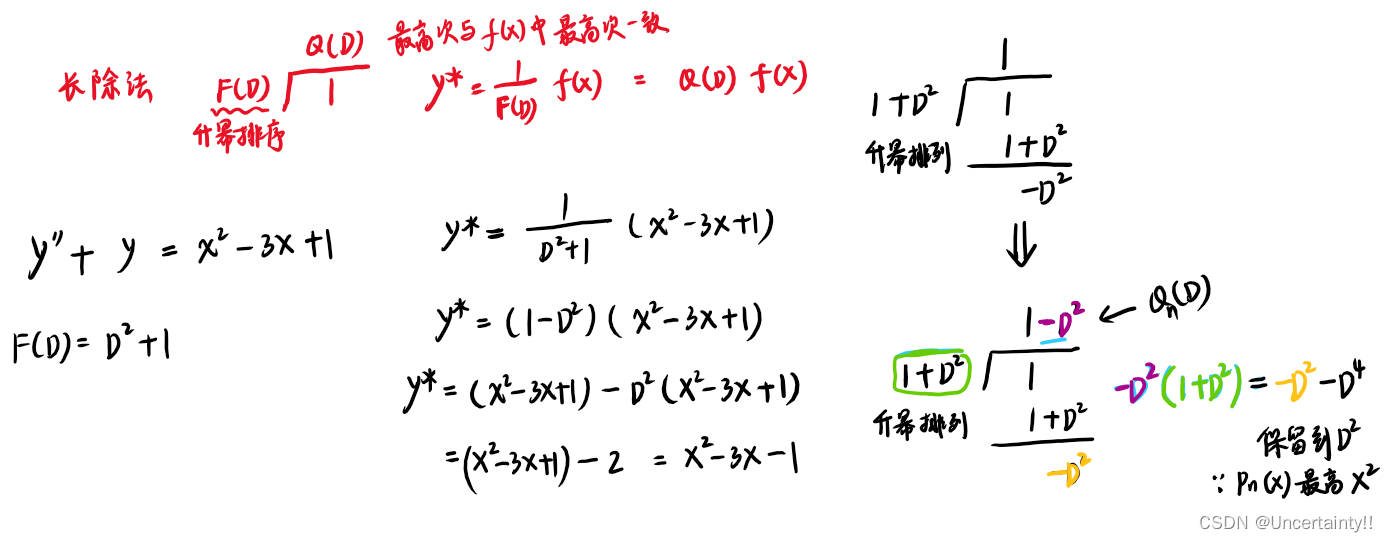 长除法
Q(D) 最高次与f(x)中最高次一致
F(D) 1
升幂排序
y* = 1/F(D) f(x) = Q(D) f(x)
y″ + y = x² - 3x + 1
F(D) = D² + 1
y* = 1/(D²+1) (x² - 3x + 1)
y* = (1-D²) (x² - 3x + 1)
y* = (x² - 3x + 1) - D² (x² - 3x + 1)
= (x² - 3x + 1) - 2 = x² - 3x - 1
1
1+D² 1
升幂排列 1+D²
-D²
⇓
1-D² ← Qn(D)
1+D² 1
升幂排列 1+D²
-D²
-D²(1+D²) = -D² - D⁴
保留到D²
∵ Pn(x)最高x²
CSDN @Uncertainty!!